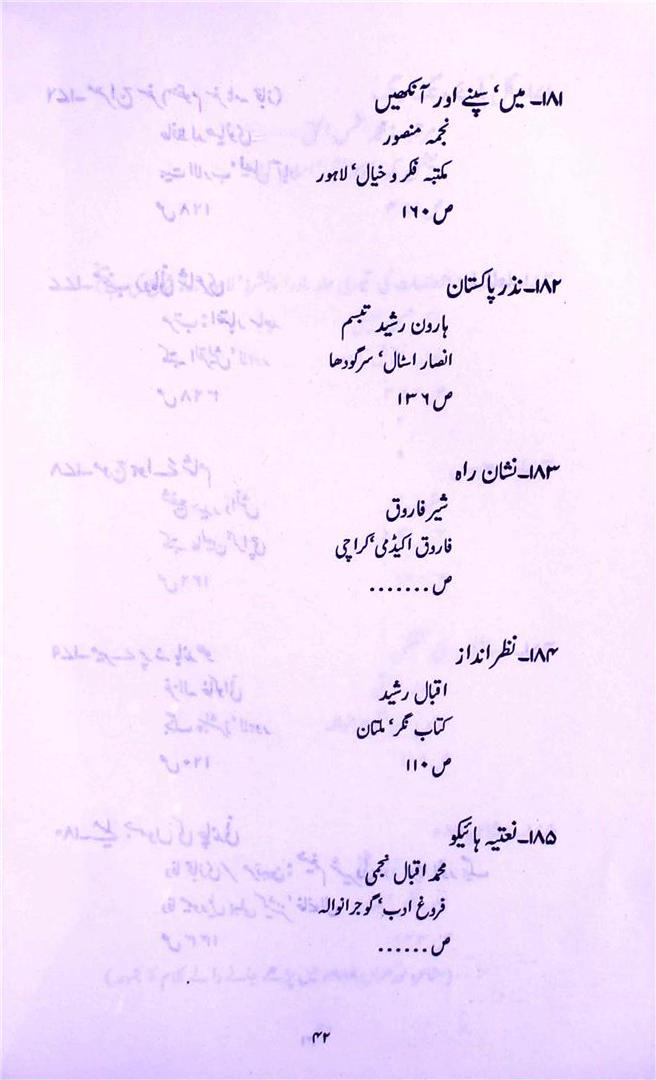 ۱۸۱۔ میں‘ سپنے اور آنکھیں
نجمہ منصور
مکتبہ فکر و خیال‘ لاہور
ص ۱۶۰
۱۸۲۔ نذر پاکستان
ہارون رشید تبسم
انصار اسٹال‘ سرگودھا
ص ۱۳۶
۱۸۳۔ نشان راہ
شیر فاروق
فاروق اکیڈمی‘ کراچی
ص.......
۱۸۴۔ نظر انداز
اقبال رشید
کتاب نگر‘ ملتان
ص ۱۱۰
۱۸۵۔ نعتیہ ہائیکو
محمد اقبال نجمی
فروغ ادب‘ گوجرانوالہ
ص......
۴۲